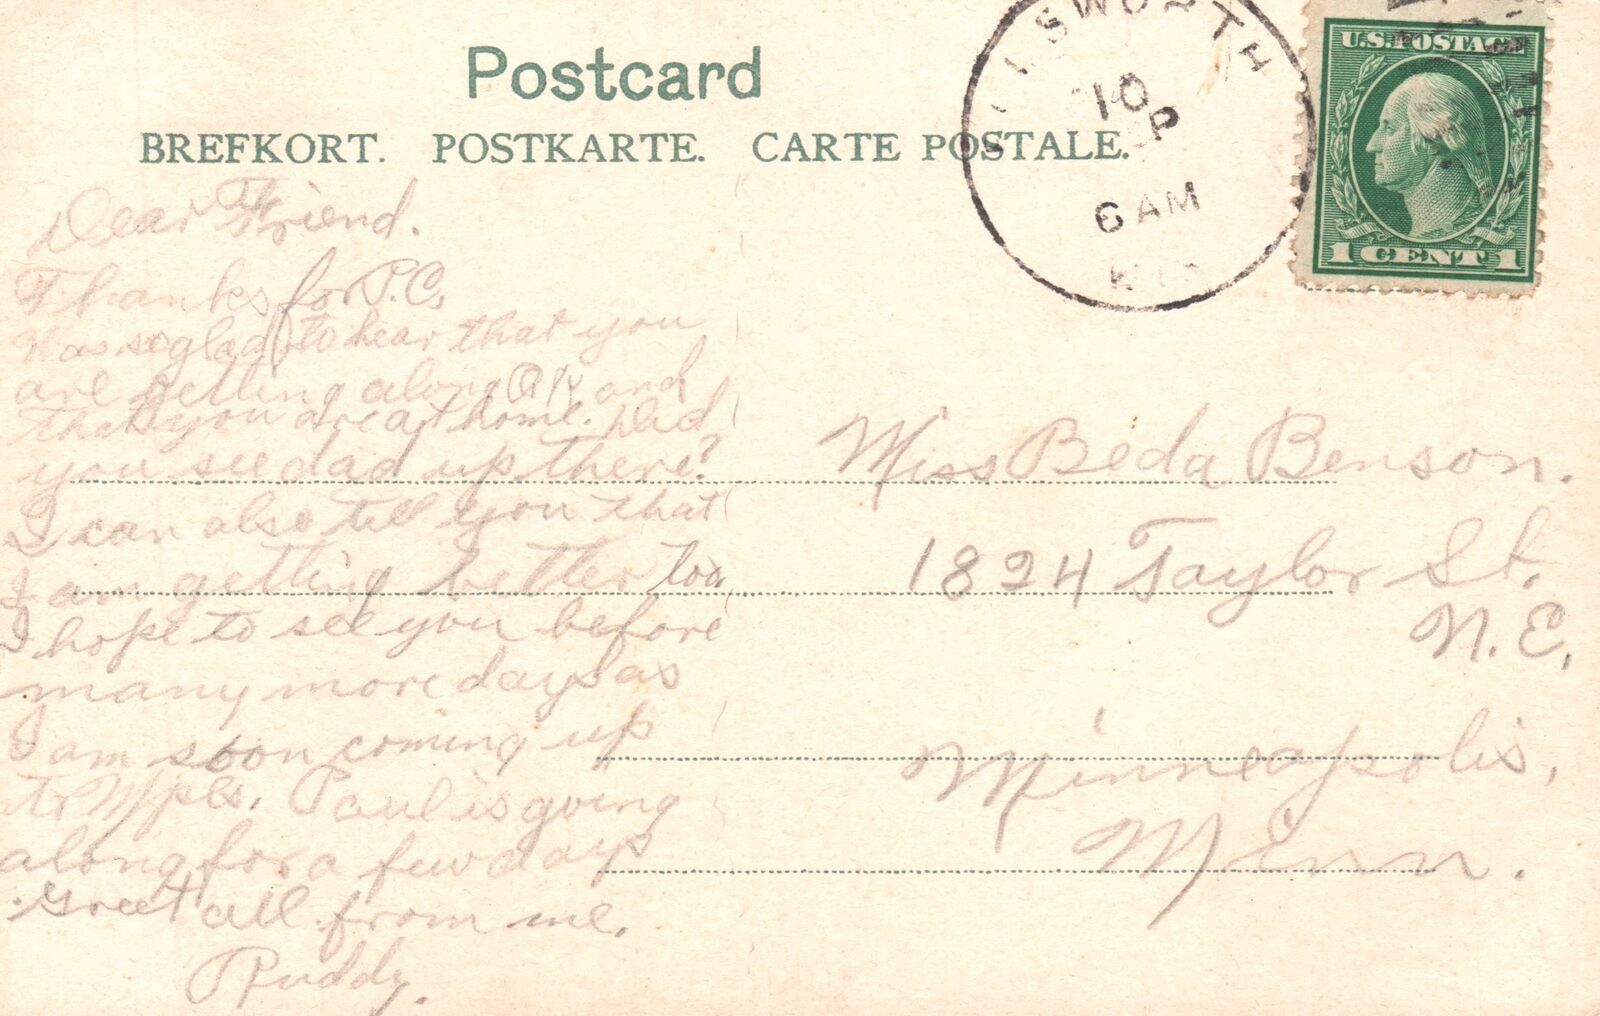 Postcard
BREFKORT. POSTKARTE. CARTE POSTALE.
LLSWORTH
10
P
6 AM
WIS
U.S. POSTAGE
1 CENT 1
Dear Friend.
Thanks for P.C.
Was so glad to hear that you
are getting along OK and
that you are at home. Did
you see dad up there?
I can also tell you that
I am getting better too.
I hope to see you before
many more days as
I am soon coming up
to Mpls. Paul is going
along for a few days
Greet all from me.
Ruddy.
Miss Beda Benson.
1824 Taylor St.
N.E.
Minneapolis,
Minn.